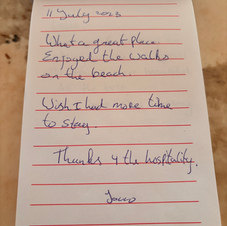 11 July 2023
What a great place.
Enjoyed the walks
on the beach.
Wish I had more time
to stay.
Thanks 4 the hospitality.